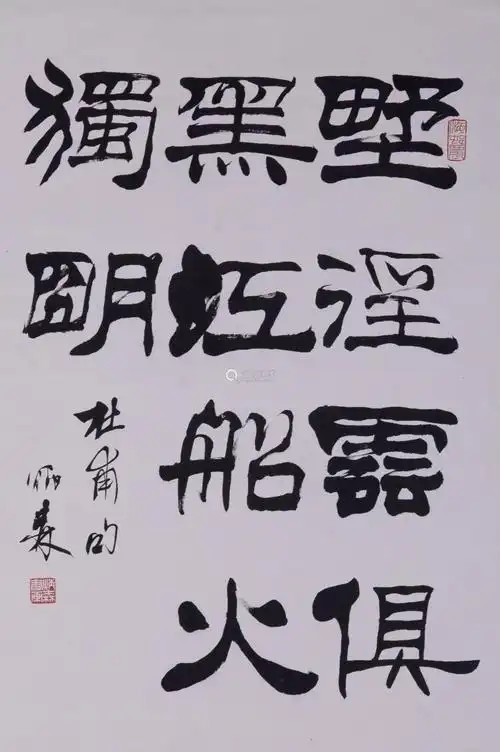 野徑雲俱
黑江船火
獨朙
杜甫句
炳森